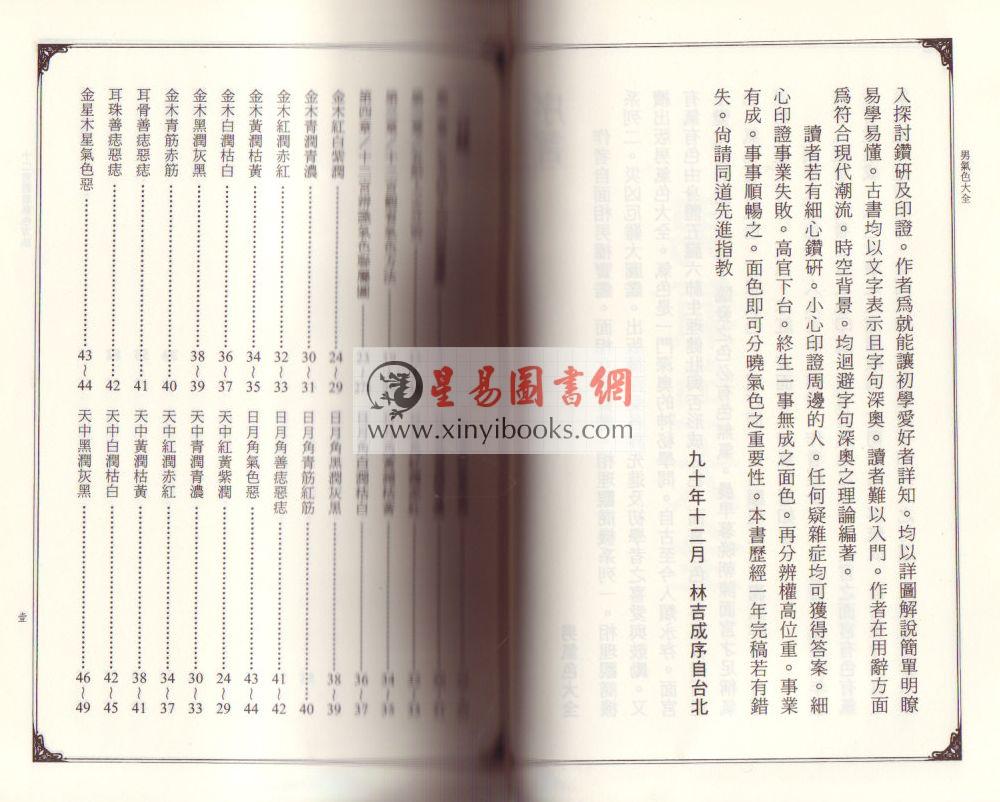 男氣色大全
入探討鑽研及印證。作者爲就能讓初學愛好者詳知。均以詳圖解說簡單明瞭
易學易懂。古書均以文字表示且字句深奧。讀者難以入門。作者在用辭方面
爲符合現代潮流。時空背景。均迴避字句深奧之理論編著。
讀者若有細心鑽研。小心印證周邊的人。任何疑雜症均可獲得答案。細
心印證事業失敗。高官下台。終生一事無成之面色。再分辨權高位重。事業
有成。事事順暢之。面色即可分曉氣色之重要性。本書歷經一年完稿若有錯
失。尙請同道先進指教
九十年十二月 林吉成序自台北
星易圖書網
www.xinyibooks.com
金木紅白紫潤……24~29
金木青潤青濃……30~31
金木紅潤赤紅……32~33
金木黃潤枯黃……34~35
金木白潤枯白……36~37
金木黑潤灰黑……38~39
金木青筋赤筋……40
耳骨善痣惡痣……41
耳珠善痣惡痣……42
金星木星氣色惡……43~44
日月角白潤枯白……36~37
日月角黑潤灰黑……38~39
日月角青筋紅筋……40
日月角善痣惡痣……41~42
日月角氣色惡……43~44
天中紅黃紫潤……24~29
天中青潤青濃……30~33
天中紅潤赤紅……34~37
天中黃潤枯黃……38~41
天中白潤枯白……42~45
天中黑潤灰黑……46~49
壹